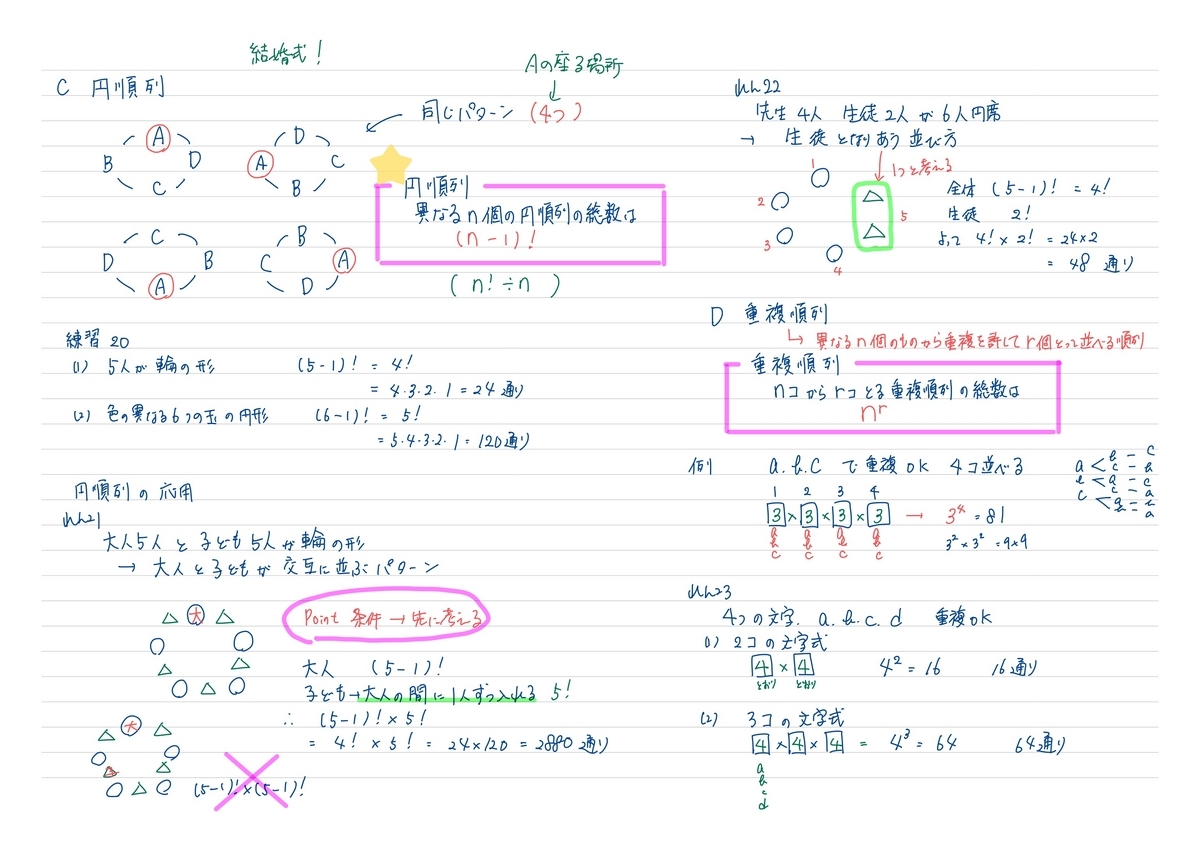 結婚式!
C 円順列
Aの座る場所
↓
同じパターン (4つ)
A
B D
C
D
A C
B
C
D B
A
B
C A
D
円順列
異なるn個の円順列の総数は
(n-1)!
(n!÷n)
練習20
(1) 5人が輪の形 (5-1)! = 4!
= 4・3・2・1 = 24通り
(2) 色の異なる6つの玉の円形 (6-1)! = 5!
= 5・4・3・2・1 = 120通り
円順列の応用
れん21
大人5人と子ども5人が輪の形
→ 大人と子どもが交互に並ぶパターン
大
Point 条件→先に考える
大人 (5-1)!
子ども→大人の間に1人ずつ入れる 5!
∴ (5-1)! × 5!
= 4! × 5! = 24×120 = 2880通り
大
(5-1)!×(5-1)!
れん22
先生4人 生徒2人が6人円席
→ 生徒となりあう並び方
1つと考える
1
2
3
4
5
全体 (5-1)! = 4!
生徒 2!
よって 4! × 2! = 24×2
= 48通り
D 重複順列
↳ 異なるn個のものから重複を許してr個とって並べる順列
重複順列
nコからrコとる重複順列の総数は
n^r
例 a.b.c で重複OK 4コ並べる
1 2 3 4
3 × 3 × 3 × 3 → 3⁴ = 81
a a a a
b b b b
c c c c
3²×3² = 9×9
a < b - c
c - b
b < a - c
c - a
c < a - b
b - a
れん23
4つの文字. a.b.c.d 重複OK
(1) 2コの文字式
4 × 4 4² = 16 16通り
とおり とおり
(2) 3コの文字式
4 × 4 × 4 = 4³ = 64 64通り
a
b
c
d